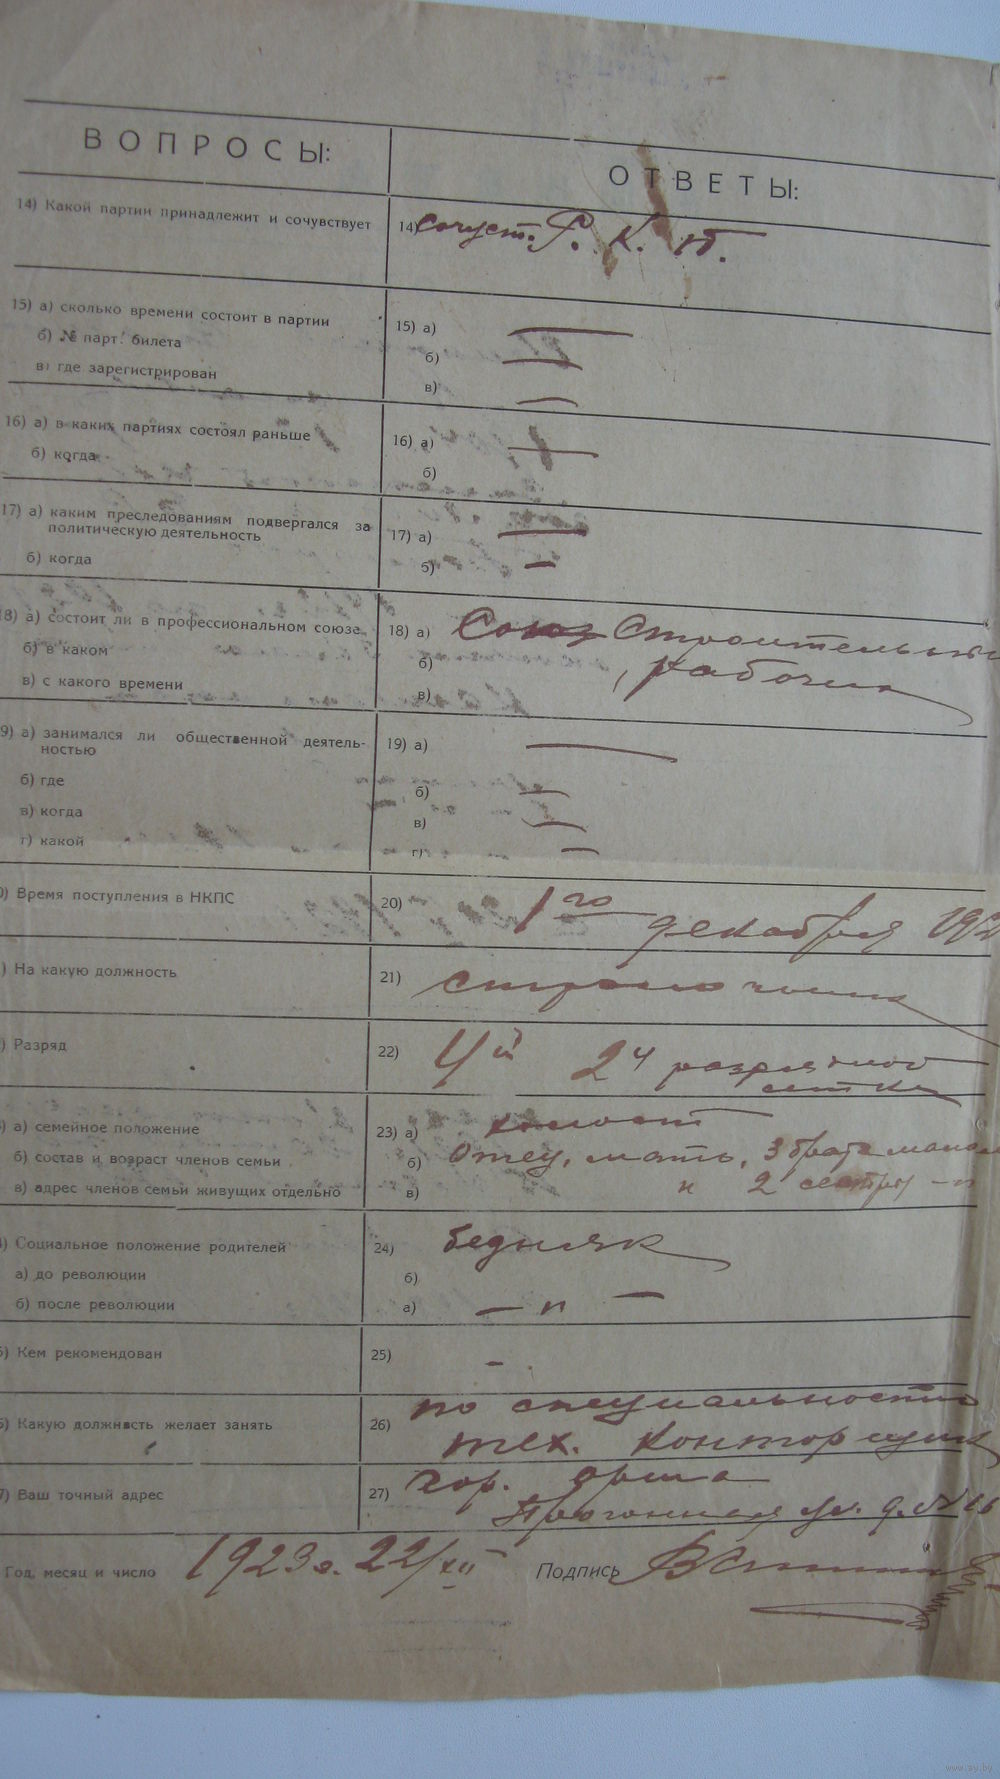 ВОПРОСЫ:
ОТВЕТЫ:
14) Какой партии принадлежит и сочувствует
14) сочуст. Р. К. П.
15) а) сколько времени состоит в партии
б) № парт. билета
в) где зарегистрирован
15) а) —
б) —
в) —
16) а) в каких партиях состоял раньше
б) когда
16) а) —
б)
17) а) каким преследованиям подвергался за
политическую деятельность
б) когда
17) а) —
б) —
18) а) состоит ли в профессиональном союзе
б) в каком
в) с какого времени
18) а) Союз Строительных
б) рабочих
в)
9) а) занимался ли общественной деятель-
ностью
б) где
в) когда
г) какой
19) а) —
б) —
в) —
г) —
0) Время поступления в НКПС
20) 1го декабря 192
) На какую должность
21)
) Разряд
22) 4й 24 разрядной
сетки
) а) семейное положение
б) состав и возраст членов семьи
в) адрес членов семьи живущих отдельно
23) а) холост
б) Отец, мать, 3 брата
в) и 2 сестры —
) Социальное положение родителей
а) до революции
б) после революции
24) бедняк
б)
а) — п —
5) Кем рекомендован
25) —
6) Какую должность желает занять
26) по специальности
тех. Конторщик
7) Ваш точный адрес
27) гор. Орша
Прогонная ул. д. № 16
Год, месяц и число 1923 г. 22/XII Подпись
www.ay.by